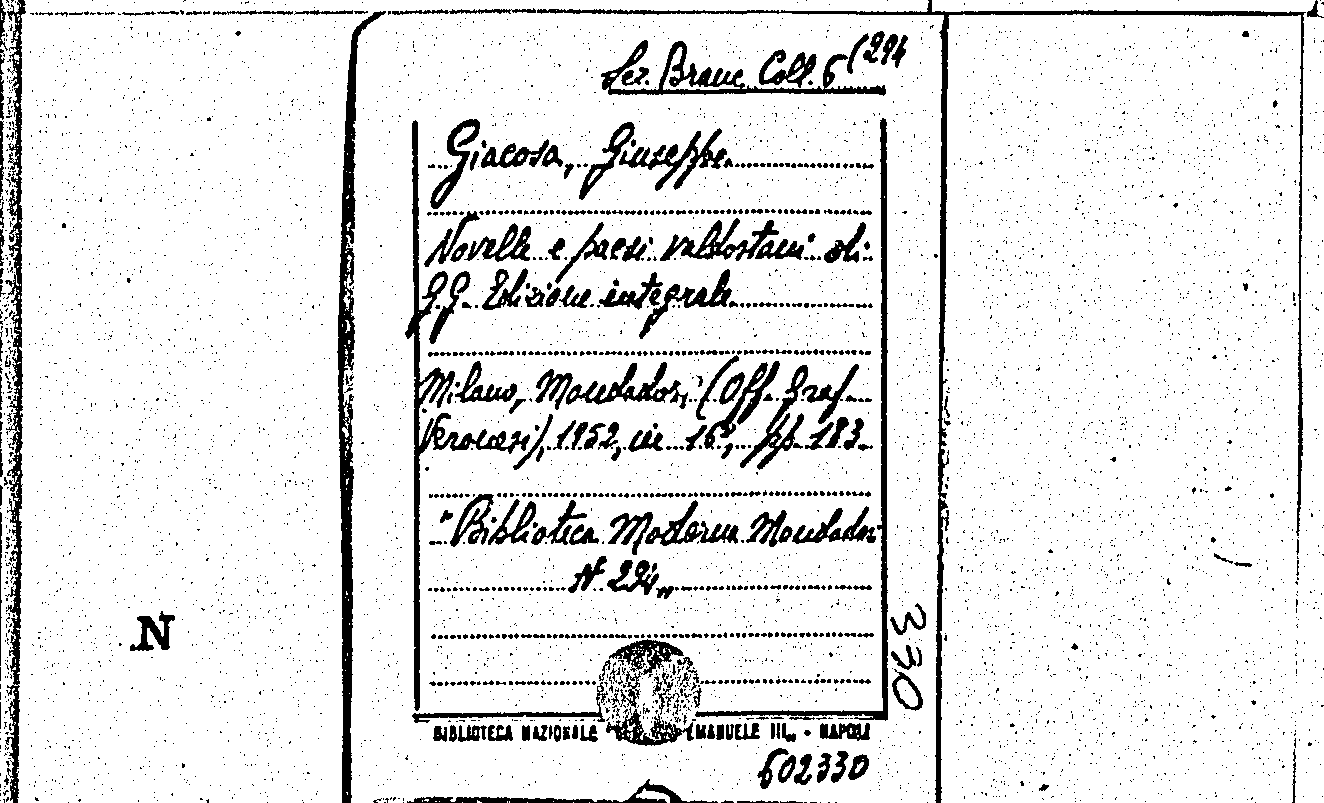 Sez. Branc. Coll. 6 (294
Giacosa, Giuseppe.
Novelle e paesi valdostani di
G.G. Edizione integrale
Milano, Mondadori, (Off. Graf.
Veronesi), 1952, in 16°, pp. 183.
"Biblioteca Moderna Mondadori
N. 294„
330
N
BIBLIOTECA NAZIONALE EMANUELE III„ - NAPOLI
602330